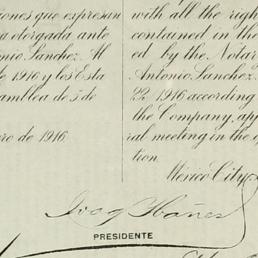 iones que expresan
a otorgada ante
onio Sanchez. Al
de 1916 y los Esta
amblea de 5 de
ro de 1916
with all the righ
contained in the
ed by the Notar
Antonio Sanchez.
22, 1916 according
the Company, app
ral meeting in the
tion.
Mexico City
Ibañez
PRESIDENTE